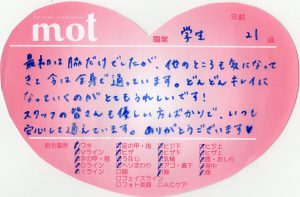 mot
年齢
職業 学生 21 歳
最初は脇だけでしたが、他のところも気になって
きて今は全身で通っています。どんどんキレイに
なっていくのがとてもうれしいです!
スタッフの皆さんも優しい方ばかりで、いつも
安心して通えています。ありがとうございます♥
脱毛箇所
ワキ
Vライン
Oライン
Iライン
足の甲・指
ヒザ
うなじ
ヘソまわり
顔
フェイスライン
フォト美顔
ヒジ下
ヒジ上
ヒザ下
乳輪
アゴ・鼻下
胸
ACケア
ヒザ上
背中
腰